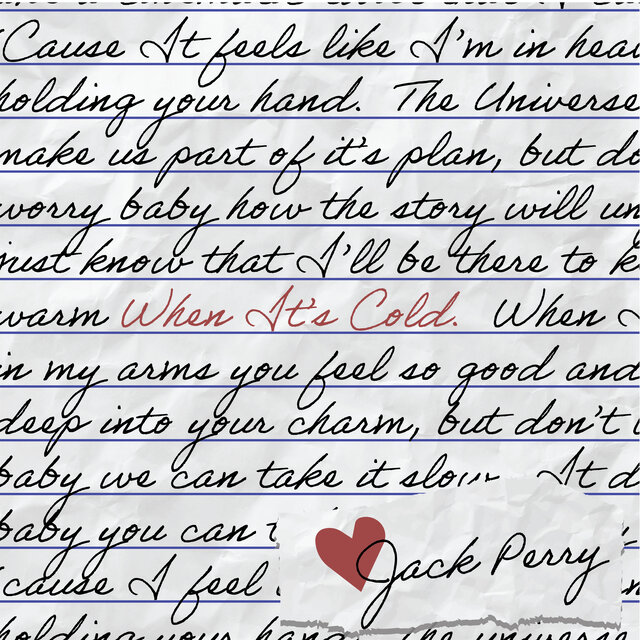 'Cause It feels like I'm in
holding your hand. The Universe
make us part of it's plan, but
worry baby how the story will
just know that I'll be there to
warm When It's Cold. When
in my arms you feel so good and
deep into your charm, but don't
baby we can take it slow It
baby you can
'cause I feel
Jack Perry
holding your